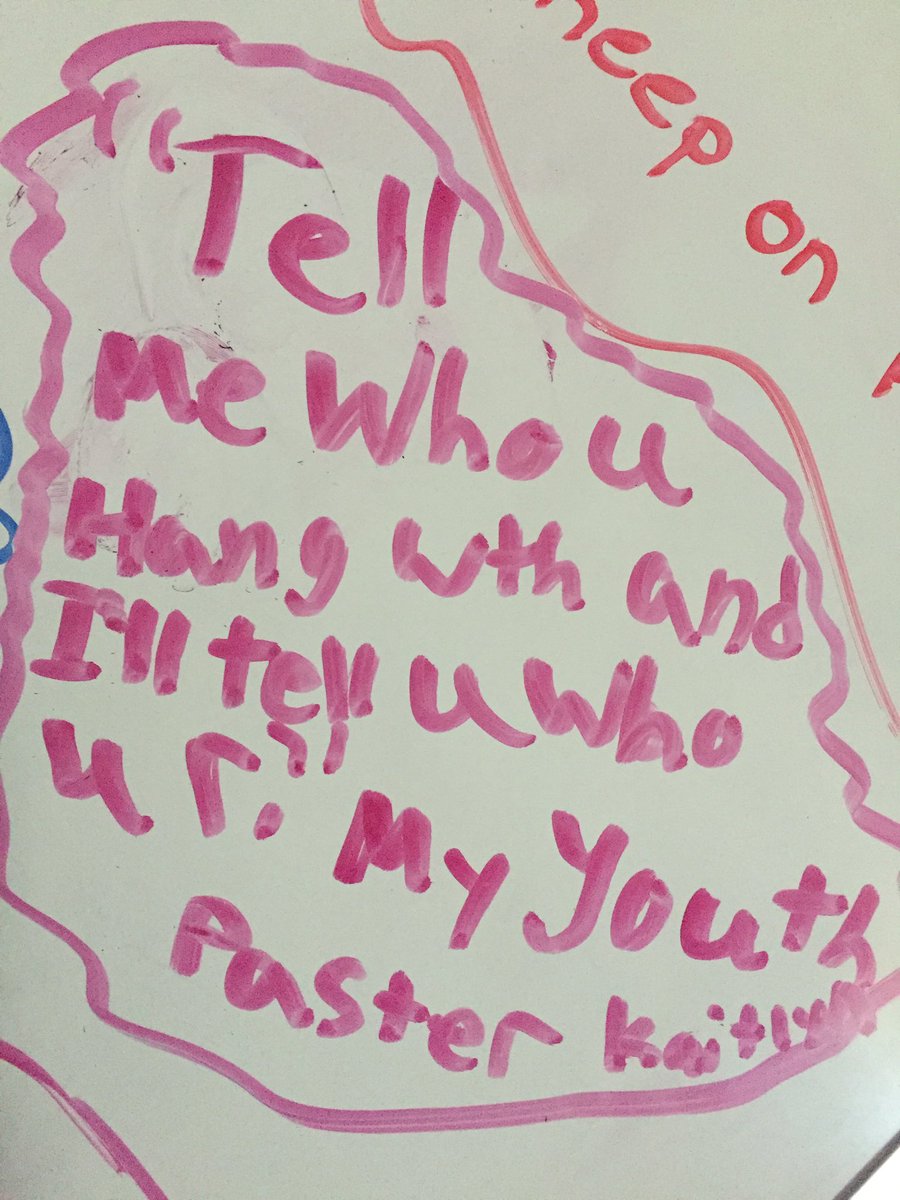 "Tell
Me Who u
Hang wth and
I'll tell u who
u r." My Youth
Paster Kaitlyn
eep on